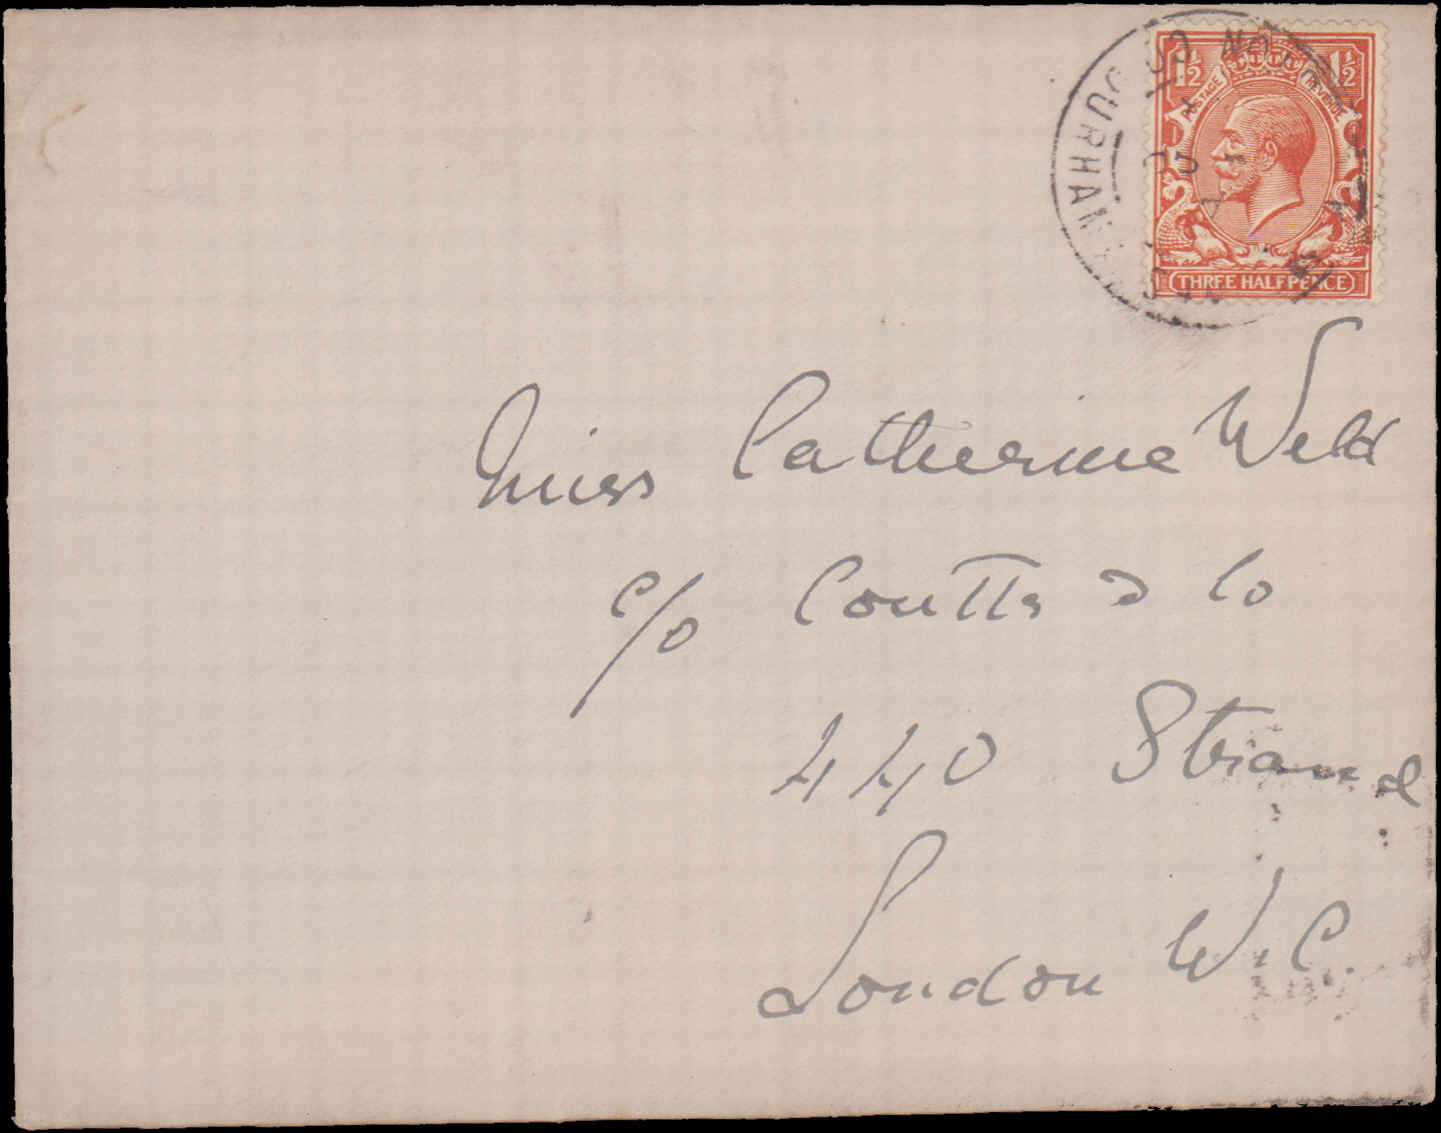 1½ 1½
POSTAGE REVENUE
THREE HALFPENCE
DURHAM
Miss Catherine Weld
c/o Coutts & Co
440 Strand
London W.C.